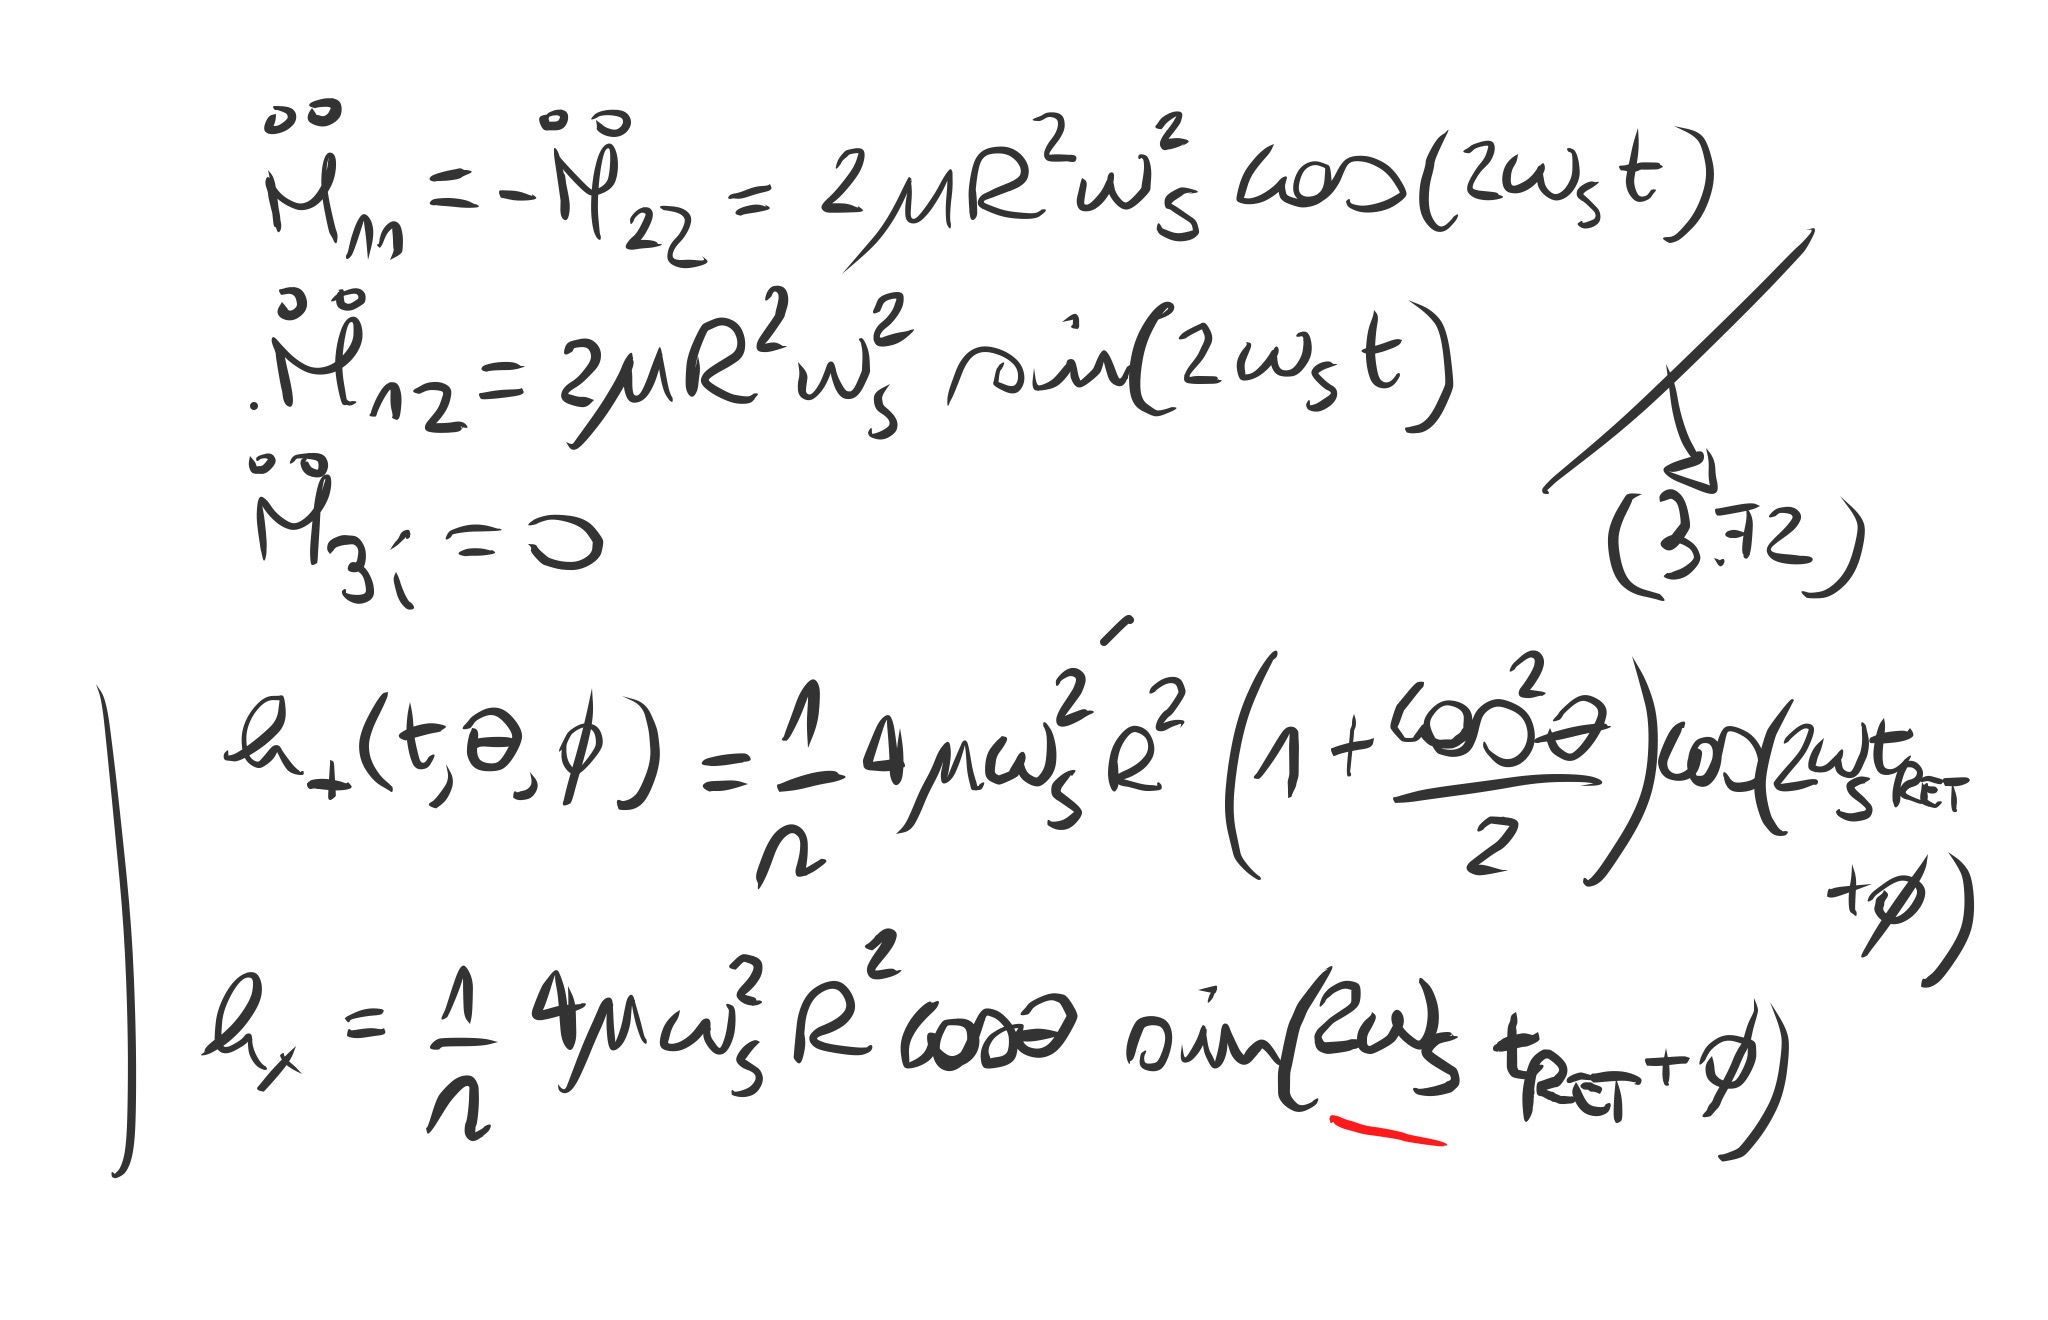 M̈₁₁ = -M̈₂₂ = 2μR²ω_s² cos(2ω_s t)
.M̈₁₂ = 2μR²ω_s² sin(2ω_s t)
M̈₃ᵢ = 0
(3.72)
h₊(t,θ,ϕ) = 1/r 4μω_s²R² (1 + cos²θ/2) cos(2ω_s t_RET
+ϕ)
hₓ = 1/r 4μω_s²R² cosθ sin(2ω_s t_RET + ϕ)